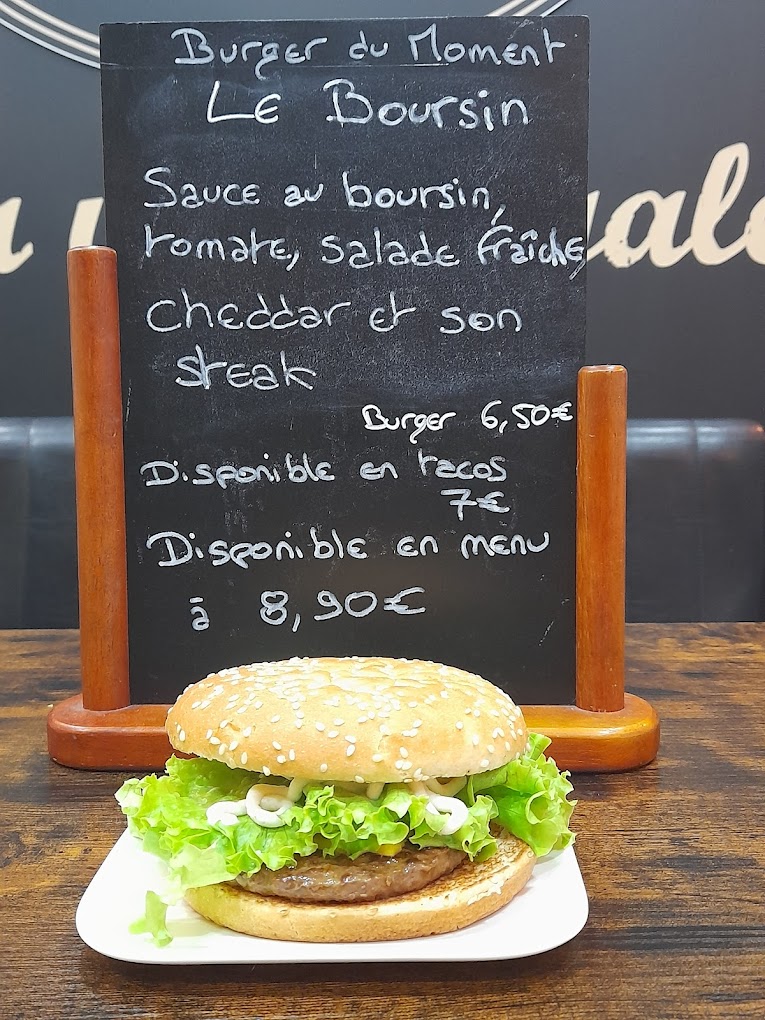 Burger du Moment
Le Boursin
Sauce au boursin,
tomate, salade fraîche
cheddar et son
steak
Burger 6,50€
Disponible en tacos
7€
Disponible en menu
à 8,90€